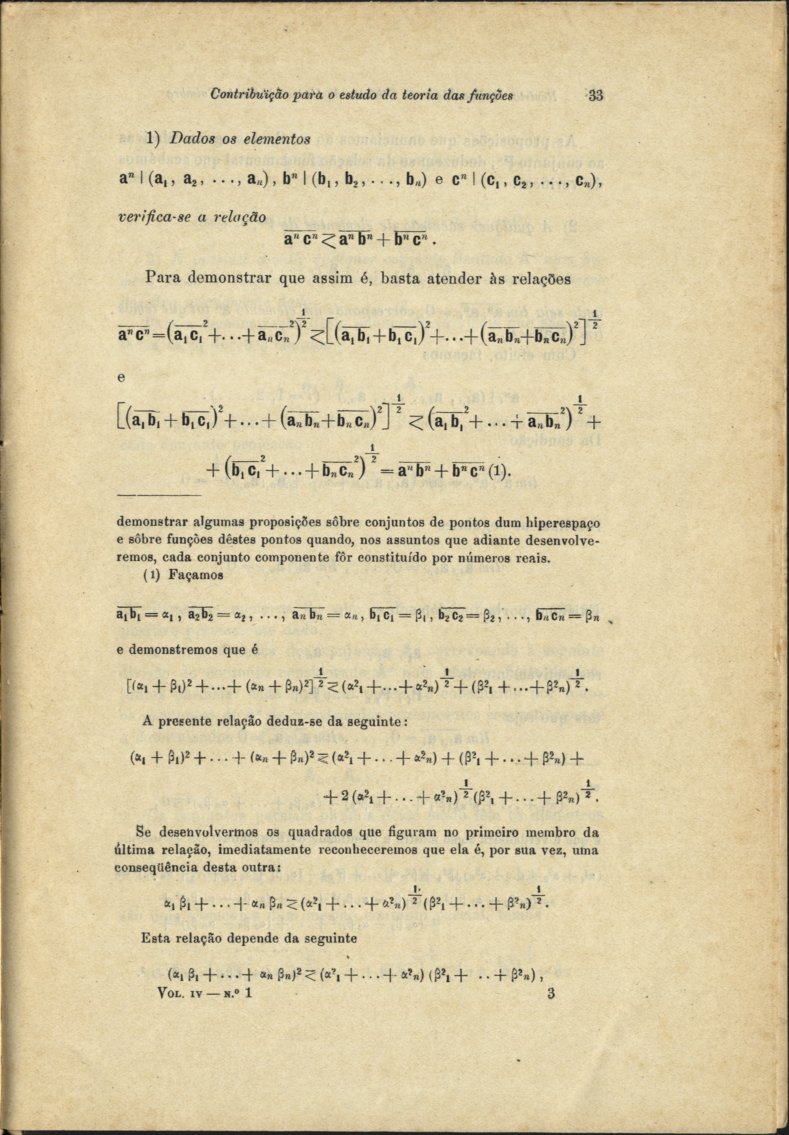 Contribuïção para o estudo da teoria das funções 33
1) Dados os elementos
aⁿ | (a₁, a₂, ..., aₙ), bⁿ | (b₁, b₂, ..., bₙ) e cⁿ | (c₁, c₂, ..., cₙ),
verifica-se a relação
a̅ⁿ̅c̅ⁿ̅ ⋜ a̅ⁿ̅b̅ⁿ̅ + b̅ⁿ̅c̅ⁿ̅ .
Para demonstrar que assim é, basta atender às relações
a̅ⁿ̅c̅ⁿ̅ = (a̅₁̅c̅₁̅² + ... + a̅ₙ̅c̅ₙ̅²)^(1/2) ⋜ [(a̅₁̅b̅₁̅ + b̅₁̅c̅₁̅)² + ... + (a̅ₙ̅b̅ₙ̅ + b̅ₙ̅c̅ₙ̅)²]^(1/2)
e
[(a̅₁̅b̅₁̅ + b̅₁̅c̅₁̅)² + ... + (a̅ₙ̅b̅ₙ̅ + b̅ₙ̅c̅ₙ̅)²]^(1/2) ⋜ (a̅₁̅b̅₁̅² + ... + a̅ₙ̅b̅ₙ̅²)^(1/2) +
+ (b̅₁̅c̅₁̅² + ... + b̅ₙ̅c̅ₙ̅²)^(1/2) = a̅ⁿ̅b̅ⁿ̅ + b̅ⁿ̅c̅ⁿ̅ (1).
demonstrar algumas proposições sôbre conjuntos de pontos dum hiperespaço
e sôbre funções dêstes pontos quando, nos assuntos que adiante desenvolve-
remos, cada conjunto componente fôr constituído por números reais.
(1) Façamos
a̅₁̅b̅₁̅ = α₁, a̅₂̅b̅₂̅ = α₂, ..., a̅ₙ̅b̅ₙ̅ = αₙ, b̅₁̅c̅₁̅ = β₁, b̅₂̅c̅₂̅ = β₂, ..., b̅ₙ̅c̅ₙ̅ = βₙ
e demonstremos que é
[(α₁ + β₁)² + ... + (αₙ + βₙ)²]^(1/2) ⋜ (α²₁ + ... + α²ₙ)^(1/2) + (β²₁ + ... + β²ₙ)^(1/2).
A presente relação deduz-se da seguinte:
(α₁ + β₁)² + ... + (αₙ + βₙ)² ⋜ (α²₁ + ... + α²ₙ) + (β²₁ + ... + β²ₙ) +
+ 2 (α²₁ + ... + α²ₙ)^(1/2) (β²₁ + ... + β²ₙ)^(1/2).
Se desenvolvermos os quadrados que figuram no primeiro membro da
última relação, imediatamente reconheceremos que ela é, por sua vez, uma
conseqüência desta outra:
α₁ β₁ + ... + αₙ βₙ ⋜ (α²₁ + ... + α²ₙ)^(1/2) (β²₁ + ... + β²ₙ)^(1/2).
Esta relação depende da seguinte
(α₁ β₁ + ... + αₙ βₙ)² ⋜ (α²₁ + ... + α²ₙ) (β²₁ + .. + β²ₙ),
VOL. IV — N.º 1 3